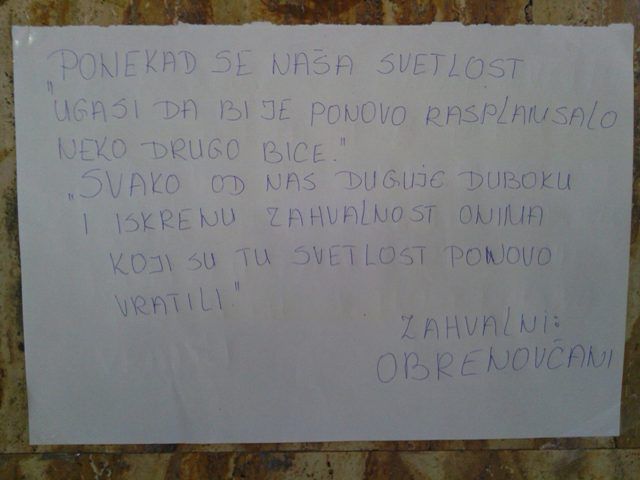 PONEKAD SE NAŠA SVETLOST
"UGASI DA BI JE PONOVO RASPLAMSALO
NEKO DRUGO BICE."
"SVAKO OD NAS DUGUJE DUBOKU
I ISKRENU ZAHVALNOST ONIMA
KOJI SU TU SVETLOST PONOVO
VRATILI."
ZAHVALNI:
OBRENOVČANI